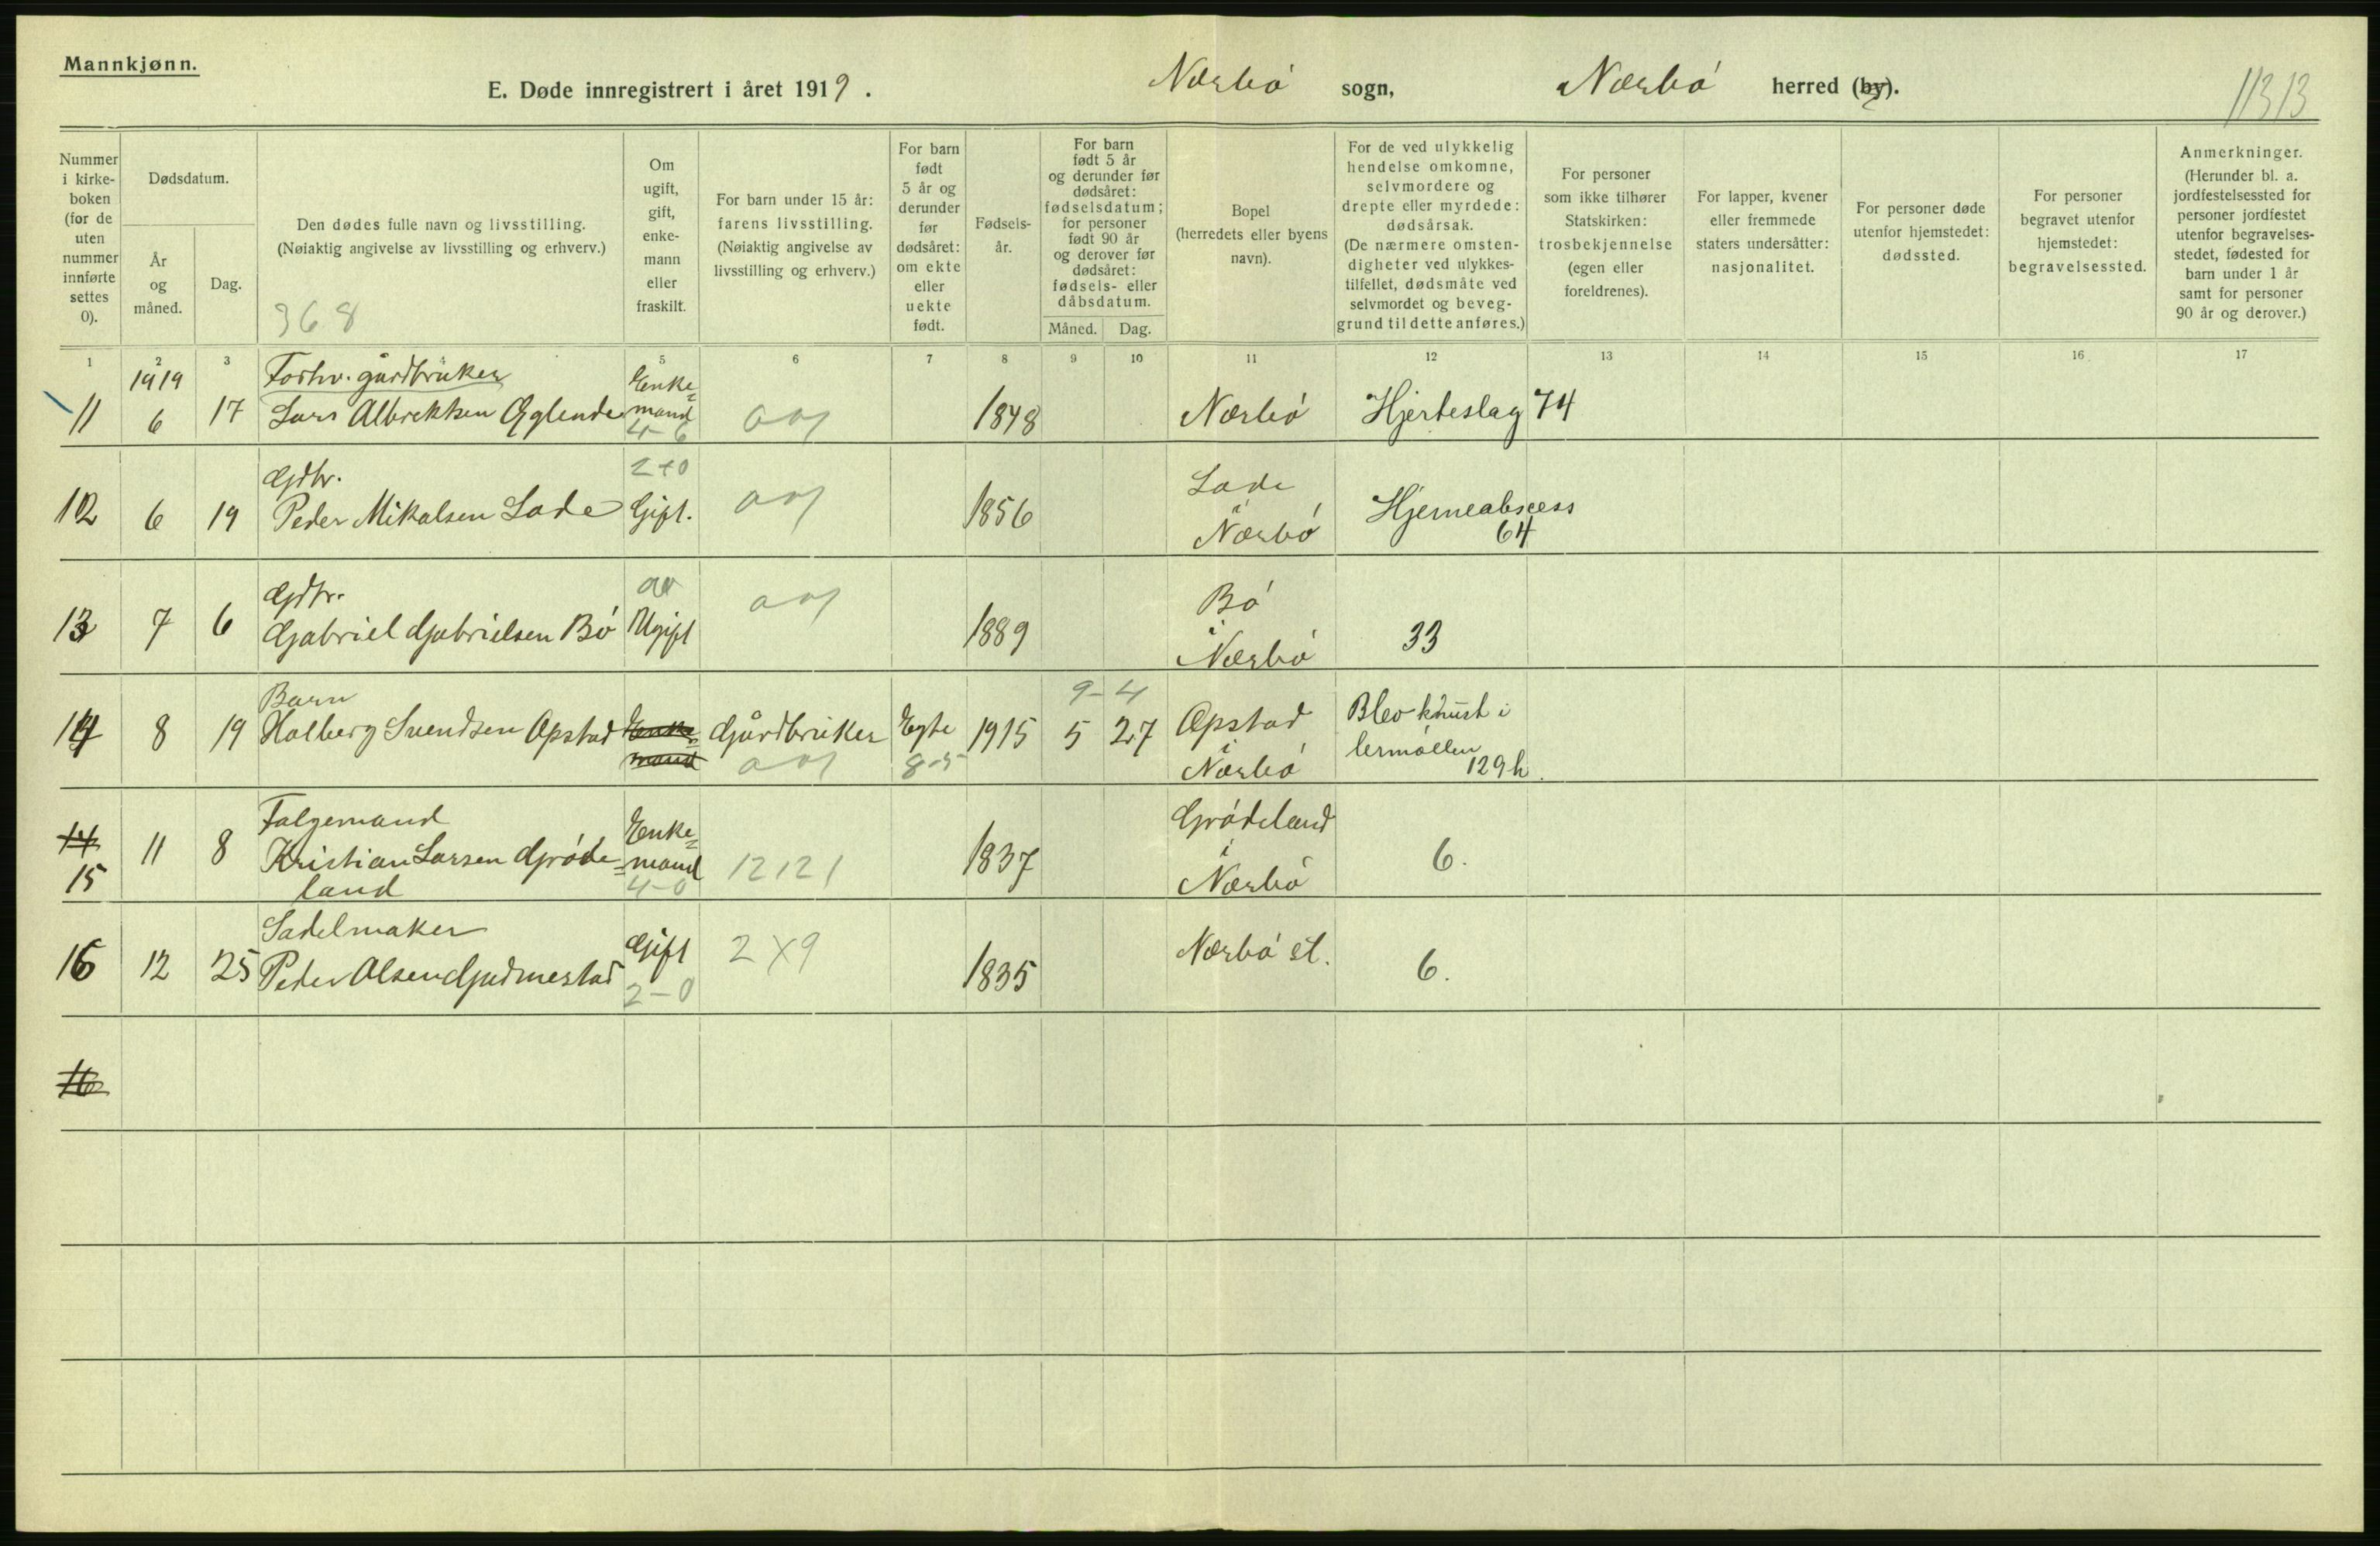 Mannkjønn.
E. Døde innregistrert i året 1919. Nærbø sogn, Nærbø herred (by).
11313
Nummer i kirke-boken (for de uten nummer innførte settes 0).
Dødsdatum.
År og måned.
Dag.
Den dødes fulle navn og livsstilling.
(Nøiaktig angivelse av livsstilling og erhverv.)
368
Om ugift, gift, enke-mann eller fraskilt.
For barn under 15 år: farens livsstilling. (Nøiaktig angivelse av livsstilling og erhverv.)
For barn født 5 år og derunder før dødsåret: om ekte eller uekte født.
Fødsels-år.
For barn født 5 år og derunder før dødsåret: fødselsdatum; for personer født 90 år og derover før dødsåret: fødsels- eller dåbsdatum.
Måned. Dag.
Bopel (herredets eller byens navn).
For de ved ulykkelig hendelse omkomne, selvmordere og drepte eller myrdede: dødsårsak. (De nærmere omsten-digheter ved ulykkes-tilfellet, dødsmåte ved selvmordet og beveg-grund til dette anføres.)
For personer som ikke tilhører Statskirken: trosbekjennelse (egen eller foreldrenes).
For lapper, kvener eller fremmede staters undersåtter: nasjonalitet.
For personer døde utenfor hjemstedet: dødssted.
For personer begravet utenfor hjemstedet: begravelsessted.
Anmerkninger. (Herunder bl. a. jordfestelsessted for personer jordfestet utenfor begravelses-stedet, fødested for barn under 1 år samt for personer 90 år og derover.)
1 2 3 5 6 7 8 9 10 11 12 13 14 15 16 17
1919 Forhv. gårdbruker Enke=
11 6 17 Lars Albrektsen Øglende mand 1848 Nærbø Hjerteslag 74
4-6
2+0
Gdbr. Lade
12 6 19 Peder Mikalsen Lade Gift. 1856 i Nærbø Hjerneabscess
64
Gdbr. Bø
13 7 6 Gabriel Gabrielsen Bø Ugift 1889 i Nærbø 33
Barn 9-4
14 8 19 Halberg Svendsen Opstad Enke= mand Gårdbruker Egte 1915 5 27 Opstad i Nærbø Blev knust i lermøllen
8-5 129h.
Folgemand Enke= Grødeland
14 15 11 8 Kristian Larsen Grøde= mand 12121 1837 i Nærbø 6.
land 4-0
Sadelmaker
16 12 25 Peder Olsen Gudmestad Gift 2X9 1835 Nærbø st. 6.
2-0
16